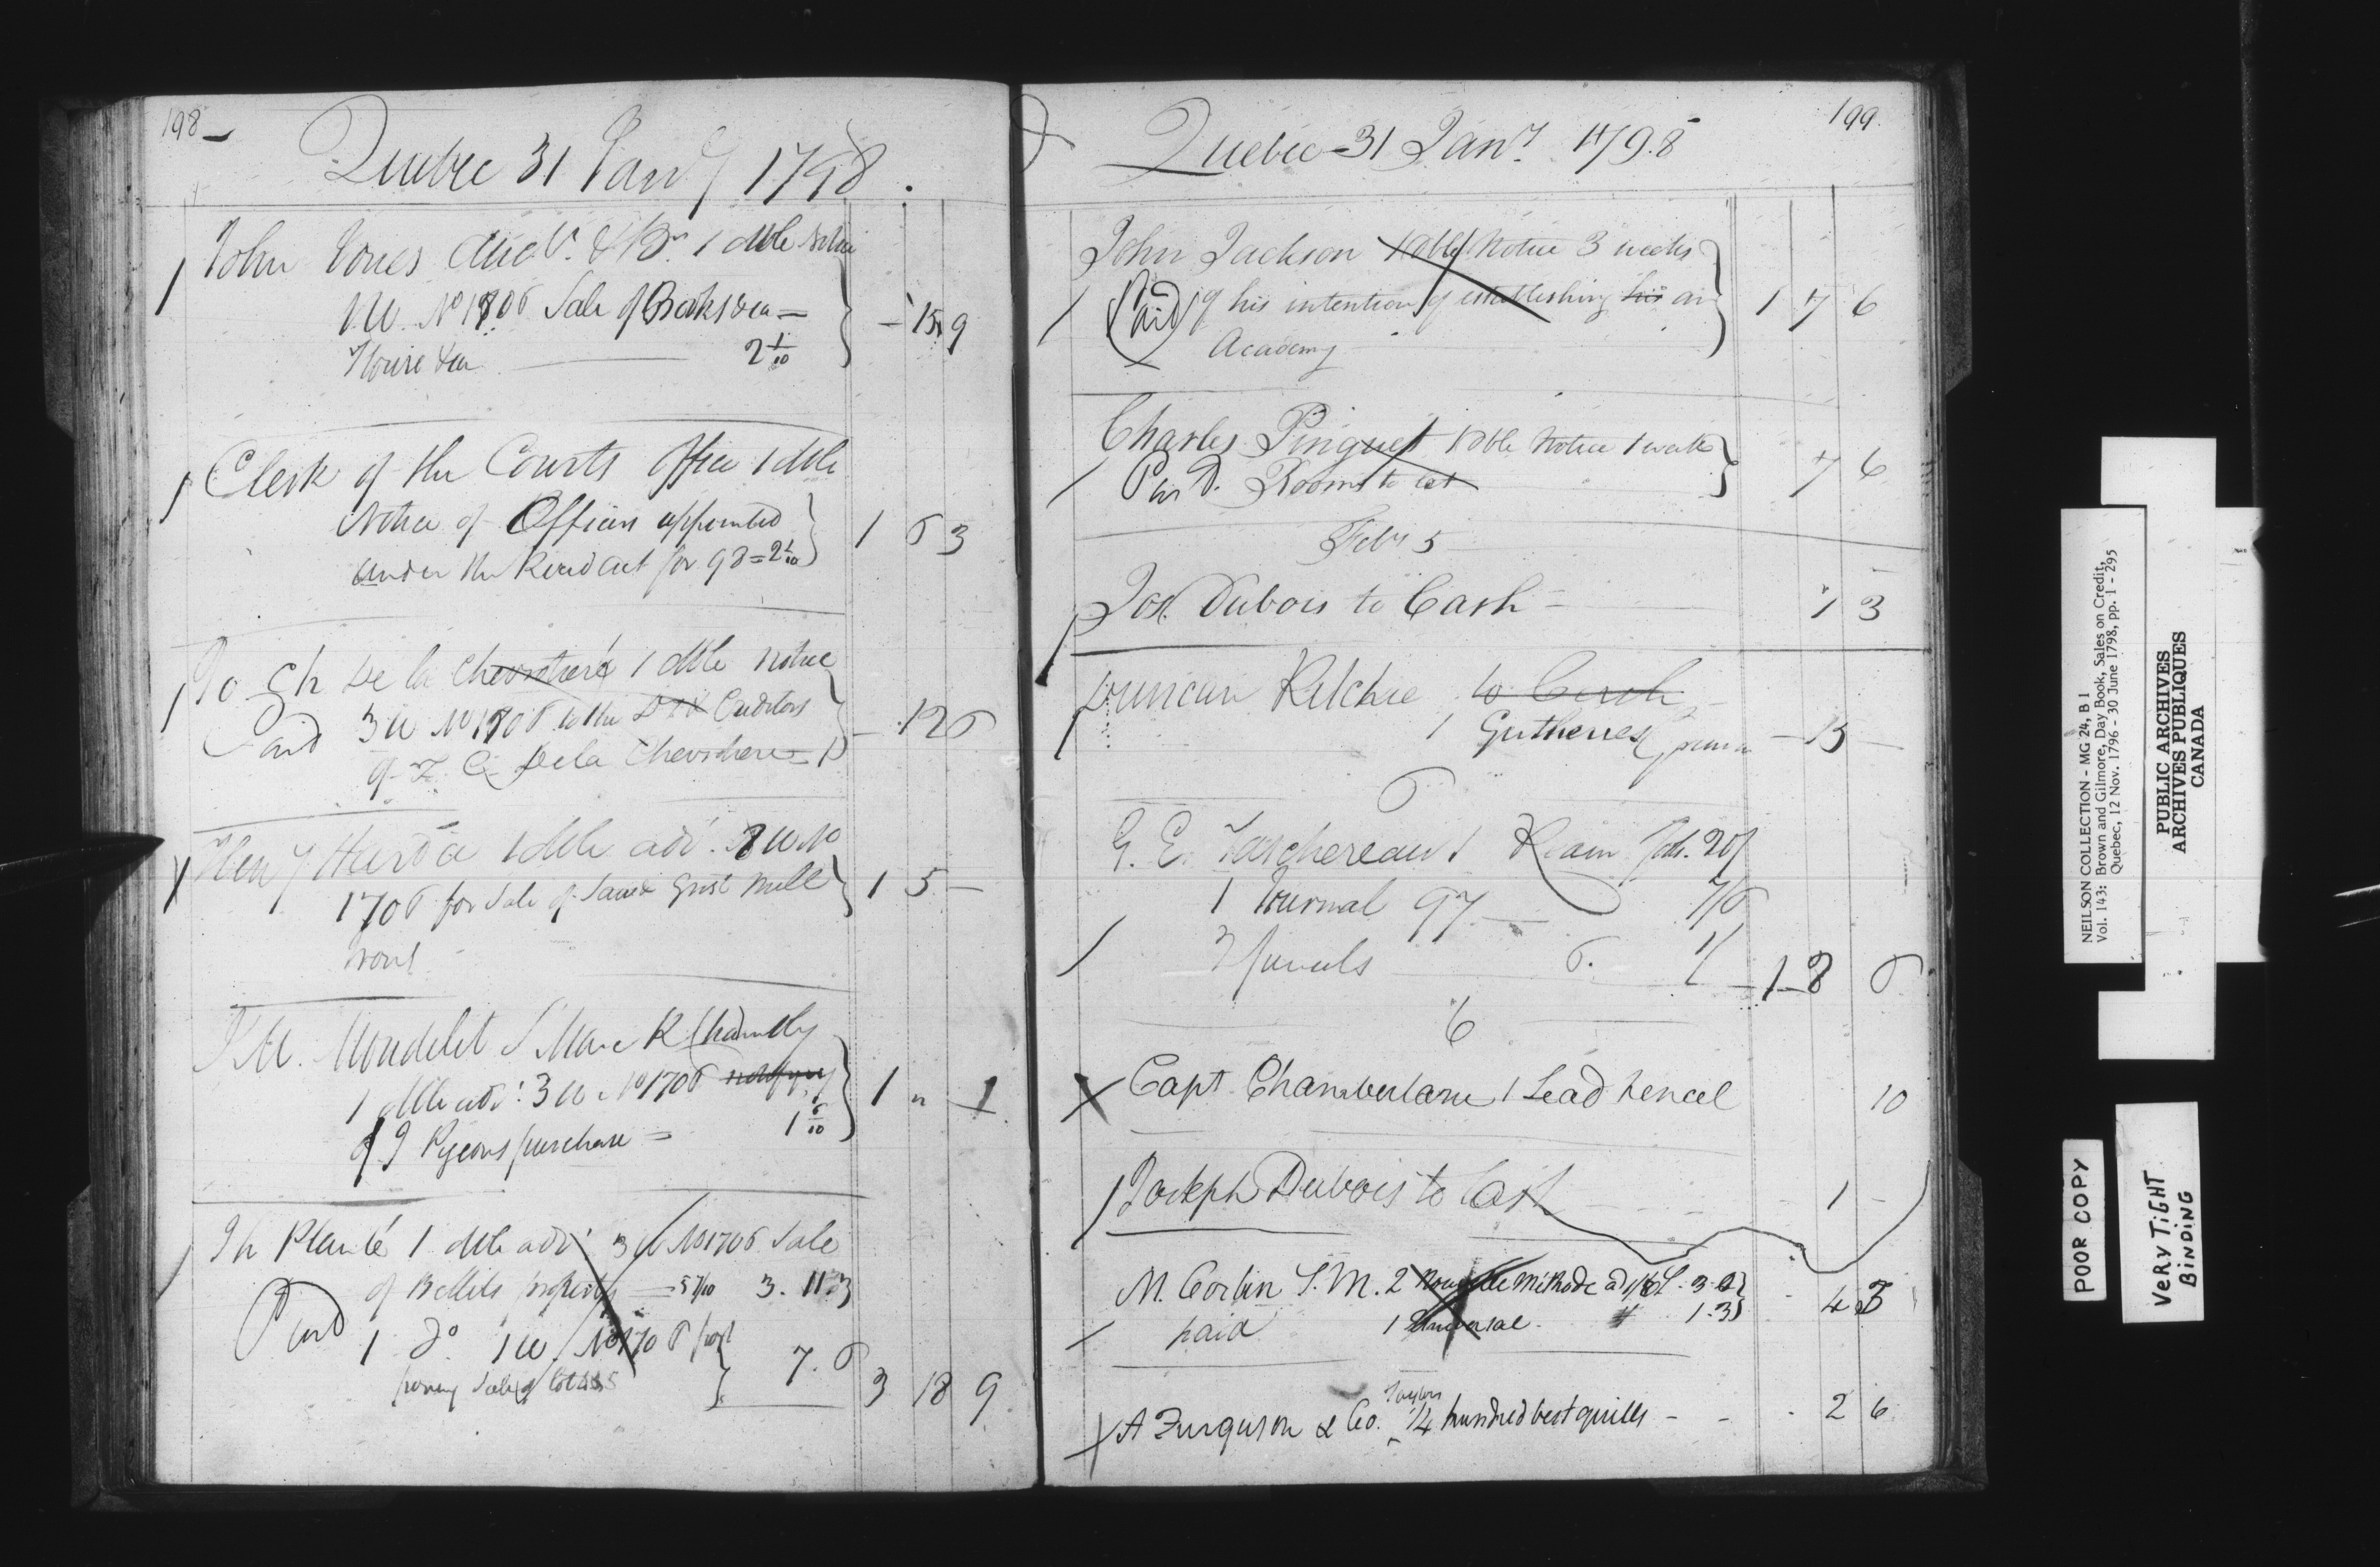 198
Quebec 31 Jany 1798.
John Jones Auc.r & Br. 1 dble notice
1 W. No 1706 Sale of Books &ca —
House &ca — 2 1/10
— 15 9
Clerk of the Courts Office 1 dble
Notice of Officers appointed
under the Road act for 98 = 2 1/10
1 6 3
De la Chevrotiere 1 dble notice
Paid 3 W No 1706 to the Creditors
of De la Chevrotiere
— 12 6
Heny 1 dble adv. 3 W No
1706 for Sale of Saw & Grist Mill
1 5 —
J M. Mondelet St Marc R Chambly
1 dble adv: 3 W No 1706 notifying
of J Pigeons purchase = 1 6/10
1 " 1
Planté 1 dble adv 3 W No 1706 Sale
of property — 5 7/10 3. 11. 3
Paid 1 do 1 W No 1706 post
poning Sale of lot 7. 6
3 18 9
199.
Quebec 31 Jany. 1798
John Jackson 1 dble Notice 3 weeks
Paid of his intention of establishing his an
Academy
1 7 6
Charles Pinguet 1 dble Notice 1 week
Paid. Rooms to let
7 6
Feby 5
Jos. Dubois to Cash —
1 3
Duncan Ritchie to Cash
1 Gutheries
— 15 —
6
G. E. Taschereau 1 Ream 20/
1 Journal 97 — 7/6
3 6. 1/
1 8 6
6
Capt Chamberlane 1 Lead Pencel
10
Joseph Dubois to Cash
1 —
M. Corbin S. M. 2 Nouvelle Methode 3.
paid 1 Universal. " 1.3
4 3
A Ferguson & Co. Taylors 1/4 hundred best quills - -
2 6
NEILSON COLLECTION - MG 24, B 1
Vol. 143: Brown and Gilmore, Day Book, Sales on Credit,
Quebec, 12 Nov. 1796 - 30 June 1798, pp. 1 - 295
PUBLIC ARCHIVES
ARCHIVES PUBLIQUES
CANADA
POOR COPY
VERY TIGHT
BINDING